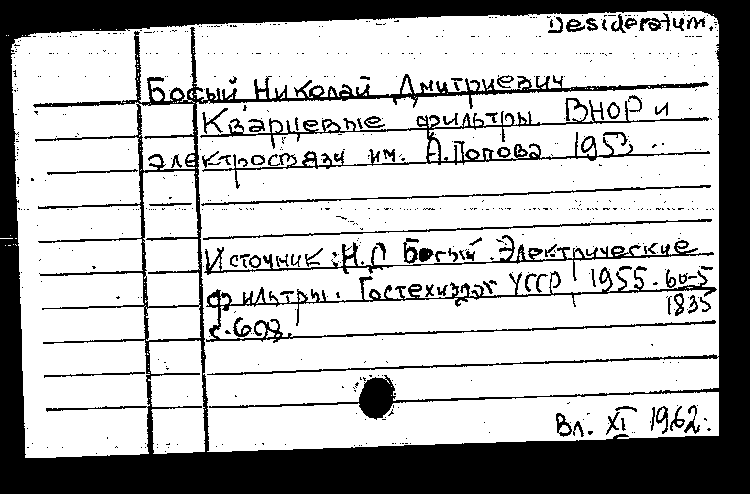 Desideratum.
Босый Николай Дмитриевич
Кварцевые фильтры ВНОР и
электросвязи им. А.Попова. 1953
Источник: Н.Д Босый. Электрические
фильтры. Гостехиздат УССР 1955. 60-5
1835
с. 608.
Вл. XI 1962.